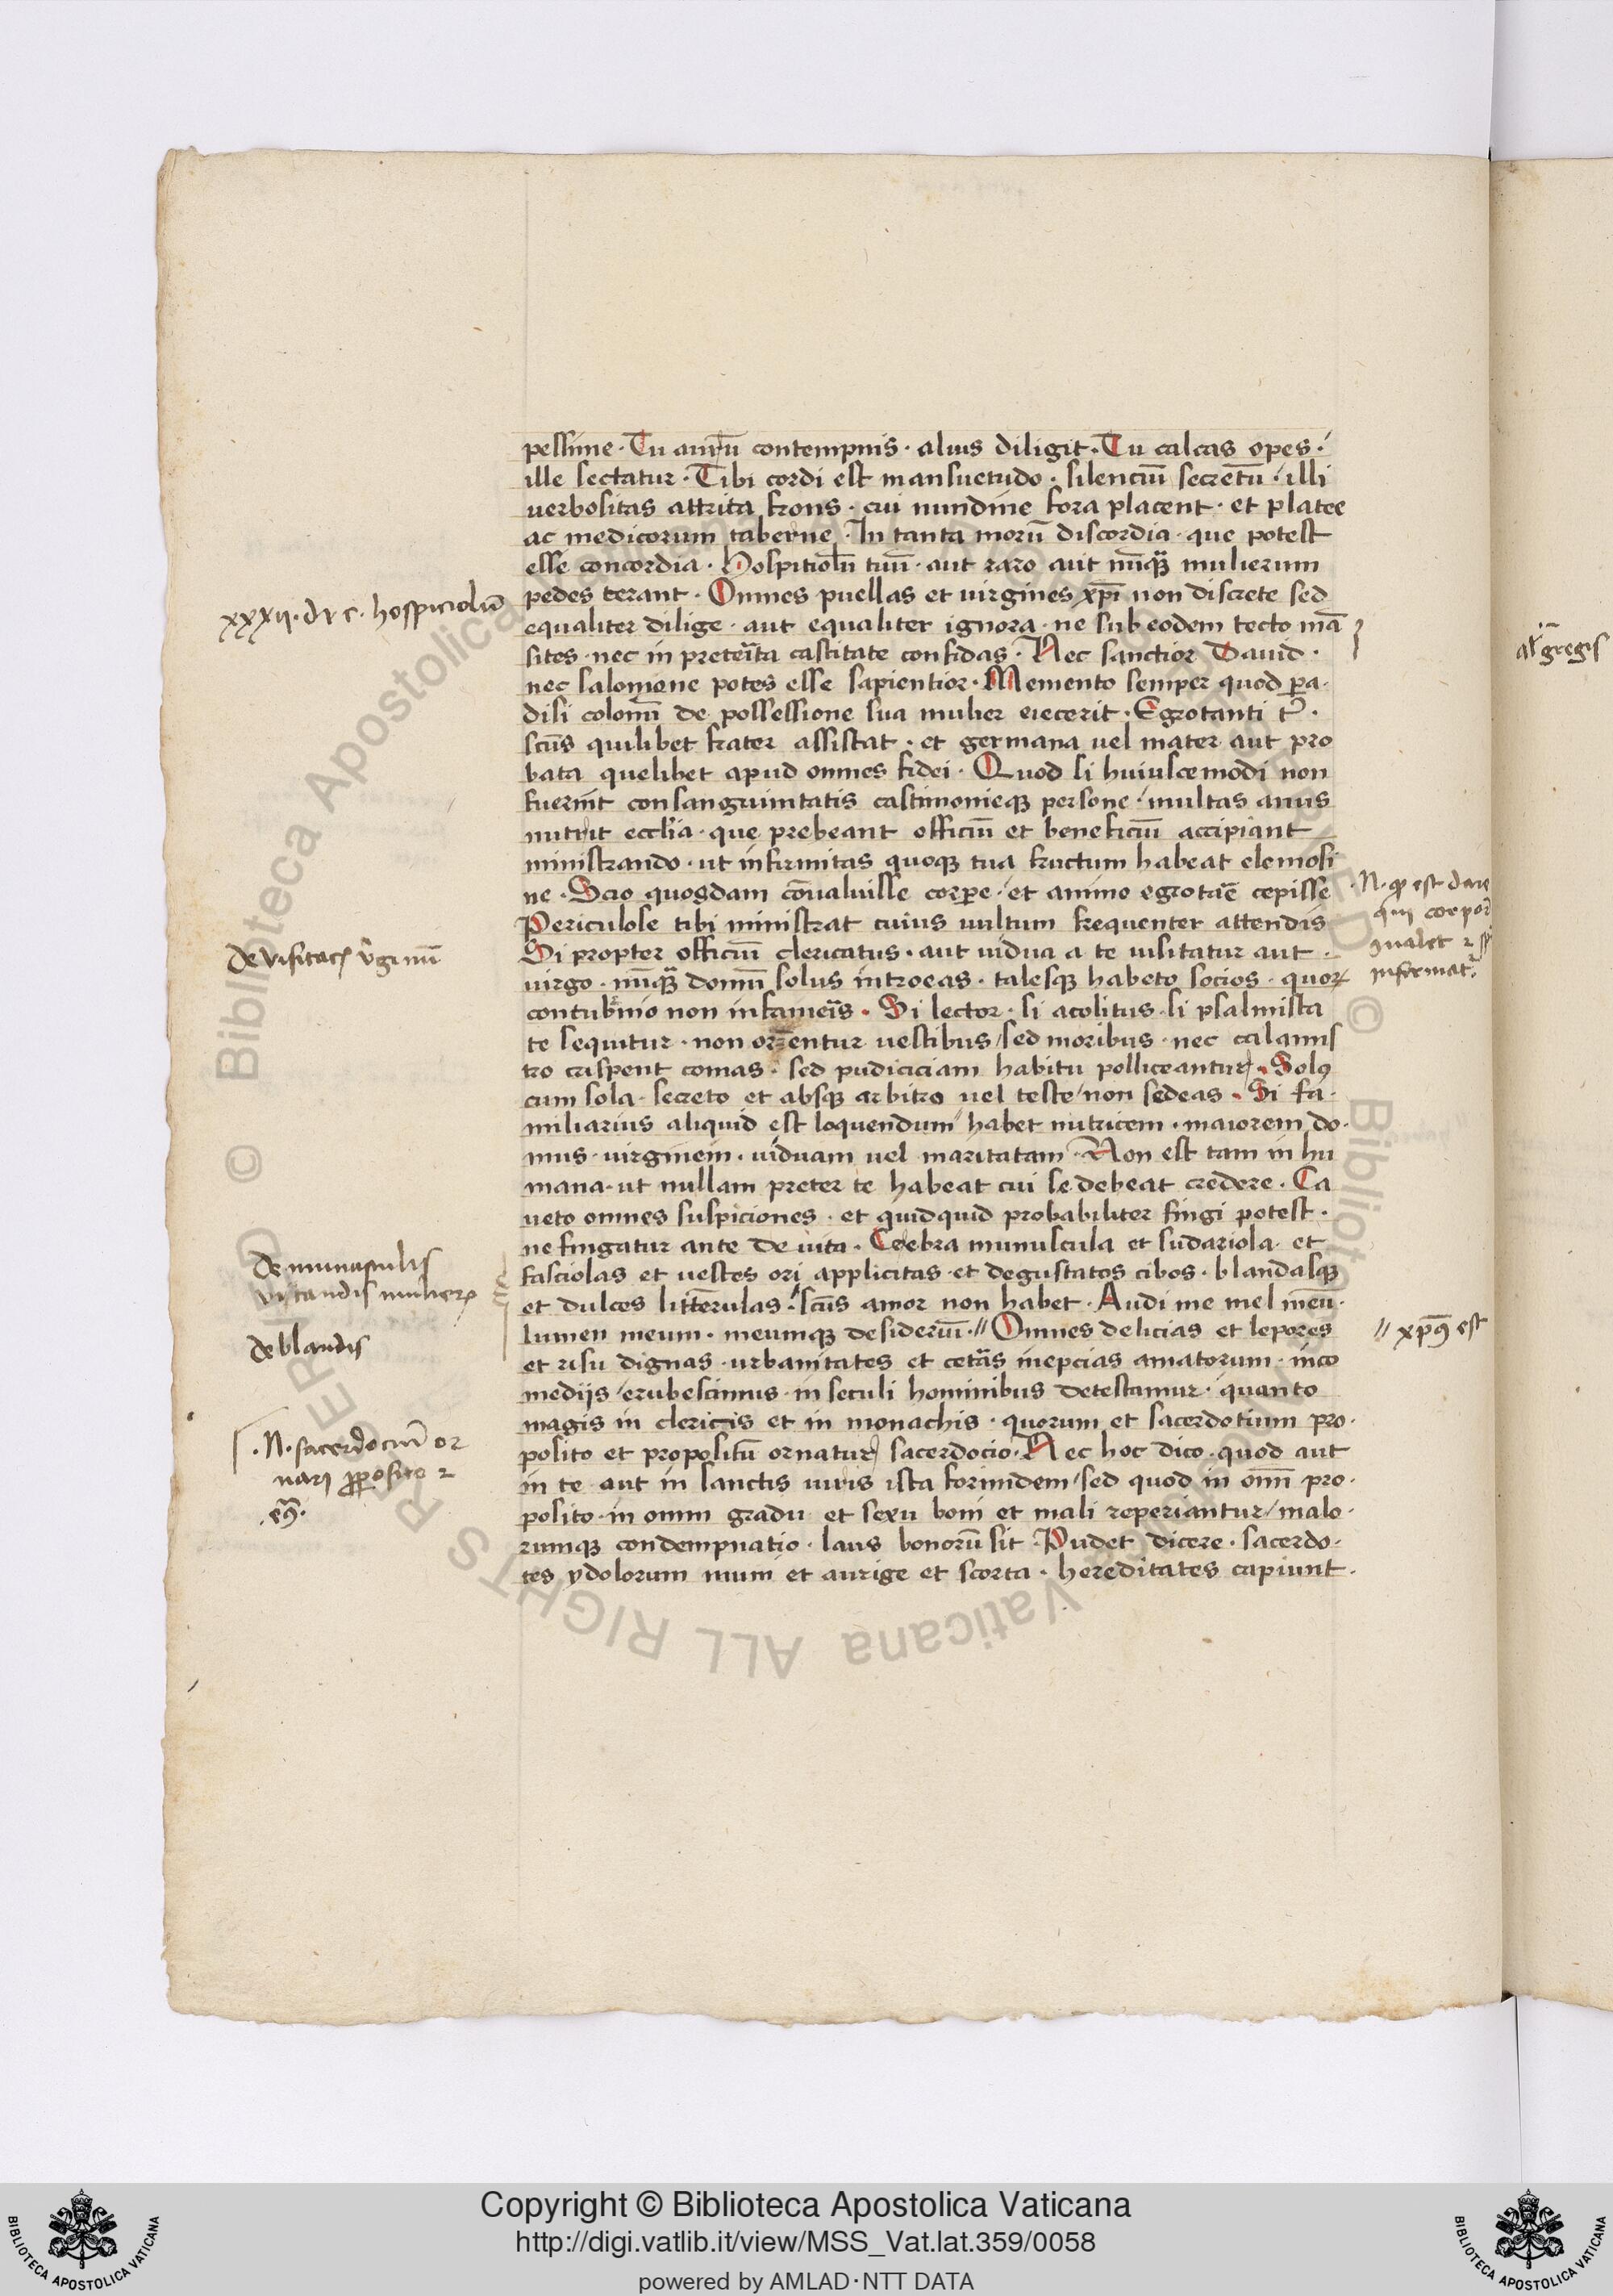 pessime · Tu aurū contempnis · alius diligit · Tu calcas opes ·
ille sectatur · Tibi cordi est mansuetudo · silenciū secretū · illi
uerbositas attrita frons · cui nundine fora placent · et platee
ac medicorum taberne · In tanta morū discordia · que potest
esse concordia · Hospitiolū tuū · aut raro aut nūq̃ mulierum
pedes terant · Omnes puellas et virgines xp̄i non discrete sed
equaliter dilige · aut equaliter ignora · ne sub eodem tecto mā
sites · nec in preterīta castitate confidas · Nec sanctior Dauid ·
nec salomone potes esse sapientior · Memento semper quod pa·
disi colonū de possessione sua mulier eiecerit · Egrotanti t͛ ·
scūs quilibet frater assistat · et germana uel mater aut pro
bata quelibet apud omnes fidei · Quod si huiuscemodi non
fuerint consanguinitatis castimonieqꝫ persone · multas anus
nutrit ecclīa · que prebeant officiū et beneficiū accipiant
ministrando · ut infirmitas quoqꝫ tua fructum habeat elemosi
ne · Scio quosdam cōualuisse corpore · et animo egrotār̄e cepisse
Periculose tibi ministrat cuius uultum frequenter attendis
Si propter officiū clericatus · aut uidua a te uisitatur aut ·
virgo · nūq̃ domū solus introeas · talesqꝫ habeto socios · quoꝝ
contub͛nio non infameīs · Si lector · si acolitus · si psalmista
te sequitur · non orn̄entur uestibus / sed moribus · nec calamis
tro crispent comas · sed pudiciciam habitu polliceantur · Solꝰ
cum sola · secreto et absqꝫ arbitro uel teste / non sedeas · Si fa·
miliarius aliquid est loquendum / habet nutricem · maiorem do·
mus · virginem · viduam uel maritatam · Non est tam in hu
mana · ut nullam preter te habeat cui se debeat credere · Ca
ueto omnes suspiciones · et quidquid probabiliter fingi potest ·
ne fingatur ante de uita · Crebra munuscula et sudariola · et
fasciolas et uestes ori applicitas · et degustatos cibos · blandasqꝫ
et dulces litt̄erulas · scūs amor non habet · Audi me mel meū ·
lumen meum · meumqꝫ desideriū · // Omnes delicias et lepores
et risu dignas · urbanitates et cetās inepcias amatorum · in co
mediis / erubescimus · in seculi hominibus detestamur · quanto
magis in clericis et in monachis · quorum et sacerdotium pro·
posito et propositū ornatur sacerdocio · Nec hoc dico · quod aut
in te aut in sanctis uiris ista formidem / sed quod in om̄i pro·
posito · in omni gradu et sexu boni et mali reperiantur / malo·
rumqꝫ condempnatio · laus bonorū sit · Pudet dicere · sacerdo·
tes ydolorum mimi et aurige et scorta · hereditates capiunt ·
xxxij · d r c · hospiciolū
de visitacōe v͛ginū
de munusculis
vitandis mulierꝫ
de blandis
· N · sacerdociū or
nari p̱roposito ⁊
eꝯ̃ ·
· N · ꝙ est dare
qui corpor
ꝯualet ⁊ sp
infirmat͛
// xp̄ꝰ est
al͛ gregis
Copyright © Biblioteca Apostolica Vaticana
http://digi.vatlib.it/view/MSS_Vat.lat.359/0058
powered by AMLAD·NTT DATA
BIBLIOTECA APOSTOLICA VATICANA
BIBLIOTECA APOSTOLICA VATICANA
© Biblioteca Apostolica Vaticana ALL RIGHTS RESERVED